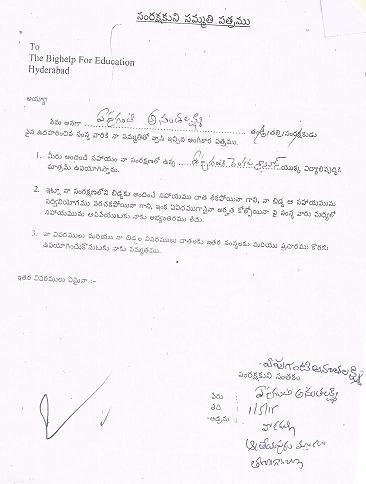 సంరక్షకుని సమ్మతి పత్రము
To
The Bighelp For Education
Hyderabad
అయ్యా
నేను అనగా అనంతలక్ష్మి తండ్రి/తల్లి/సంరక్షకుడు
పైన ఉదహరించిన సంస్థ వారికి నా సమ్మతితో వ్రాసి ఇచ్చిన అంగీకార పత్రము.
1. మీరు అందించే సహాయం నా సంరక్షణలో ఉన్న యొక్క విద్యాభివృద్ధికి
మాత్రమే ఉపయోగిస్తాము.
2. ఇట్లా నా సంరక్షణలోని బిడ్డకు అందించే సహాయము దాత లేకపోయినా గాని, నా బిడ్డ ఆ సహాయమును
సద్వినియోగము పరచకపోయినా గాని, ఇంక ఏవిధముగానైనా అర్హత కోల్పోయినా పై సంస్థ వారు మధ్యలో
సహాయమును ఆపివేయుటకు నాకు అభ్యంతరము లేదు.
3. నా వివరములు మరియు నా బిడ్డల వివరములు దాతలకు ఇతర సంస్థలకు మరియు ప్రచారము కొరకు
ఉపయోగించుకొనుటకు నాకు సమ్మతము.
ఇతర వివరములు ఏమైనా :-
సంరక్షకుని సంతకం
పేరు : అనంతలక్ష్మి
తేది : 1/5/15
అడ్రసు :